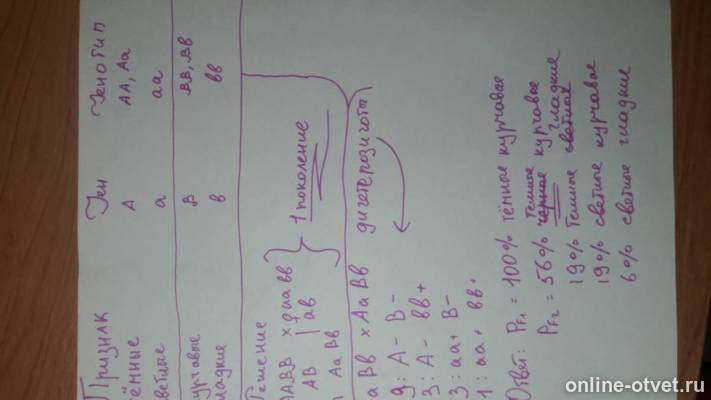 Признак Ген Генотип
тёмные А АА, Аа
светлые а аа
курчавые В ВВ, Вв
гладкие в вв
Решение
ААВВ х ♀ аа вв
АВ | ав
Аа Вв
} 1 поколение
а Вв х Аа Вв дигетерозиготы
9: А - В -
3: А - вв +
3: аа + В -
1: аа + вв +
Ответ: PF1 = 100% тёмные курчавые
PF2 = 56% темные курчавые
19% темные гладкие
19% светлые курчавые
6% светлые гладкие
online-otvet.ru